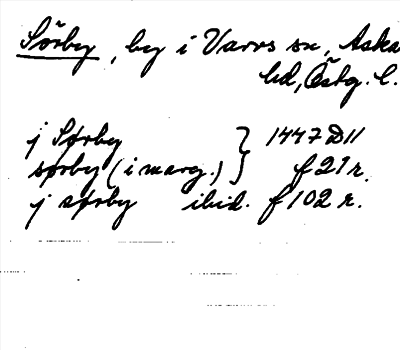 Sörby, by i Varvs sn, Aska
hd, Östg. l.
j Sørby } 1447 D11
sørby (i marg.) } f 21 r.
j sørby ibid. f 102 r.